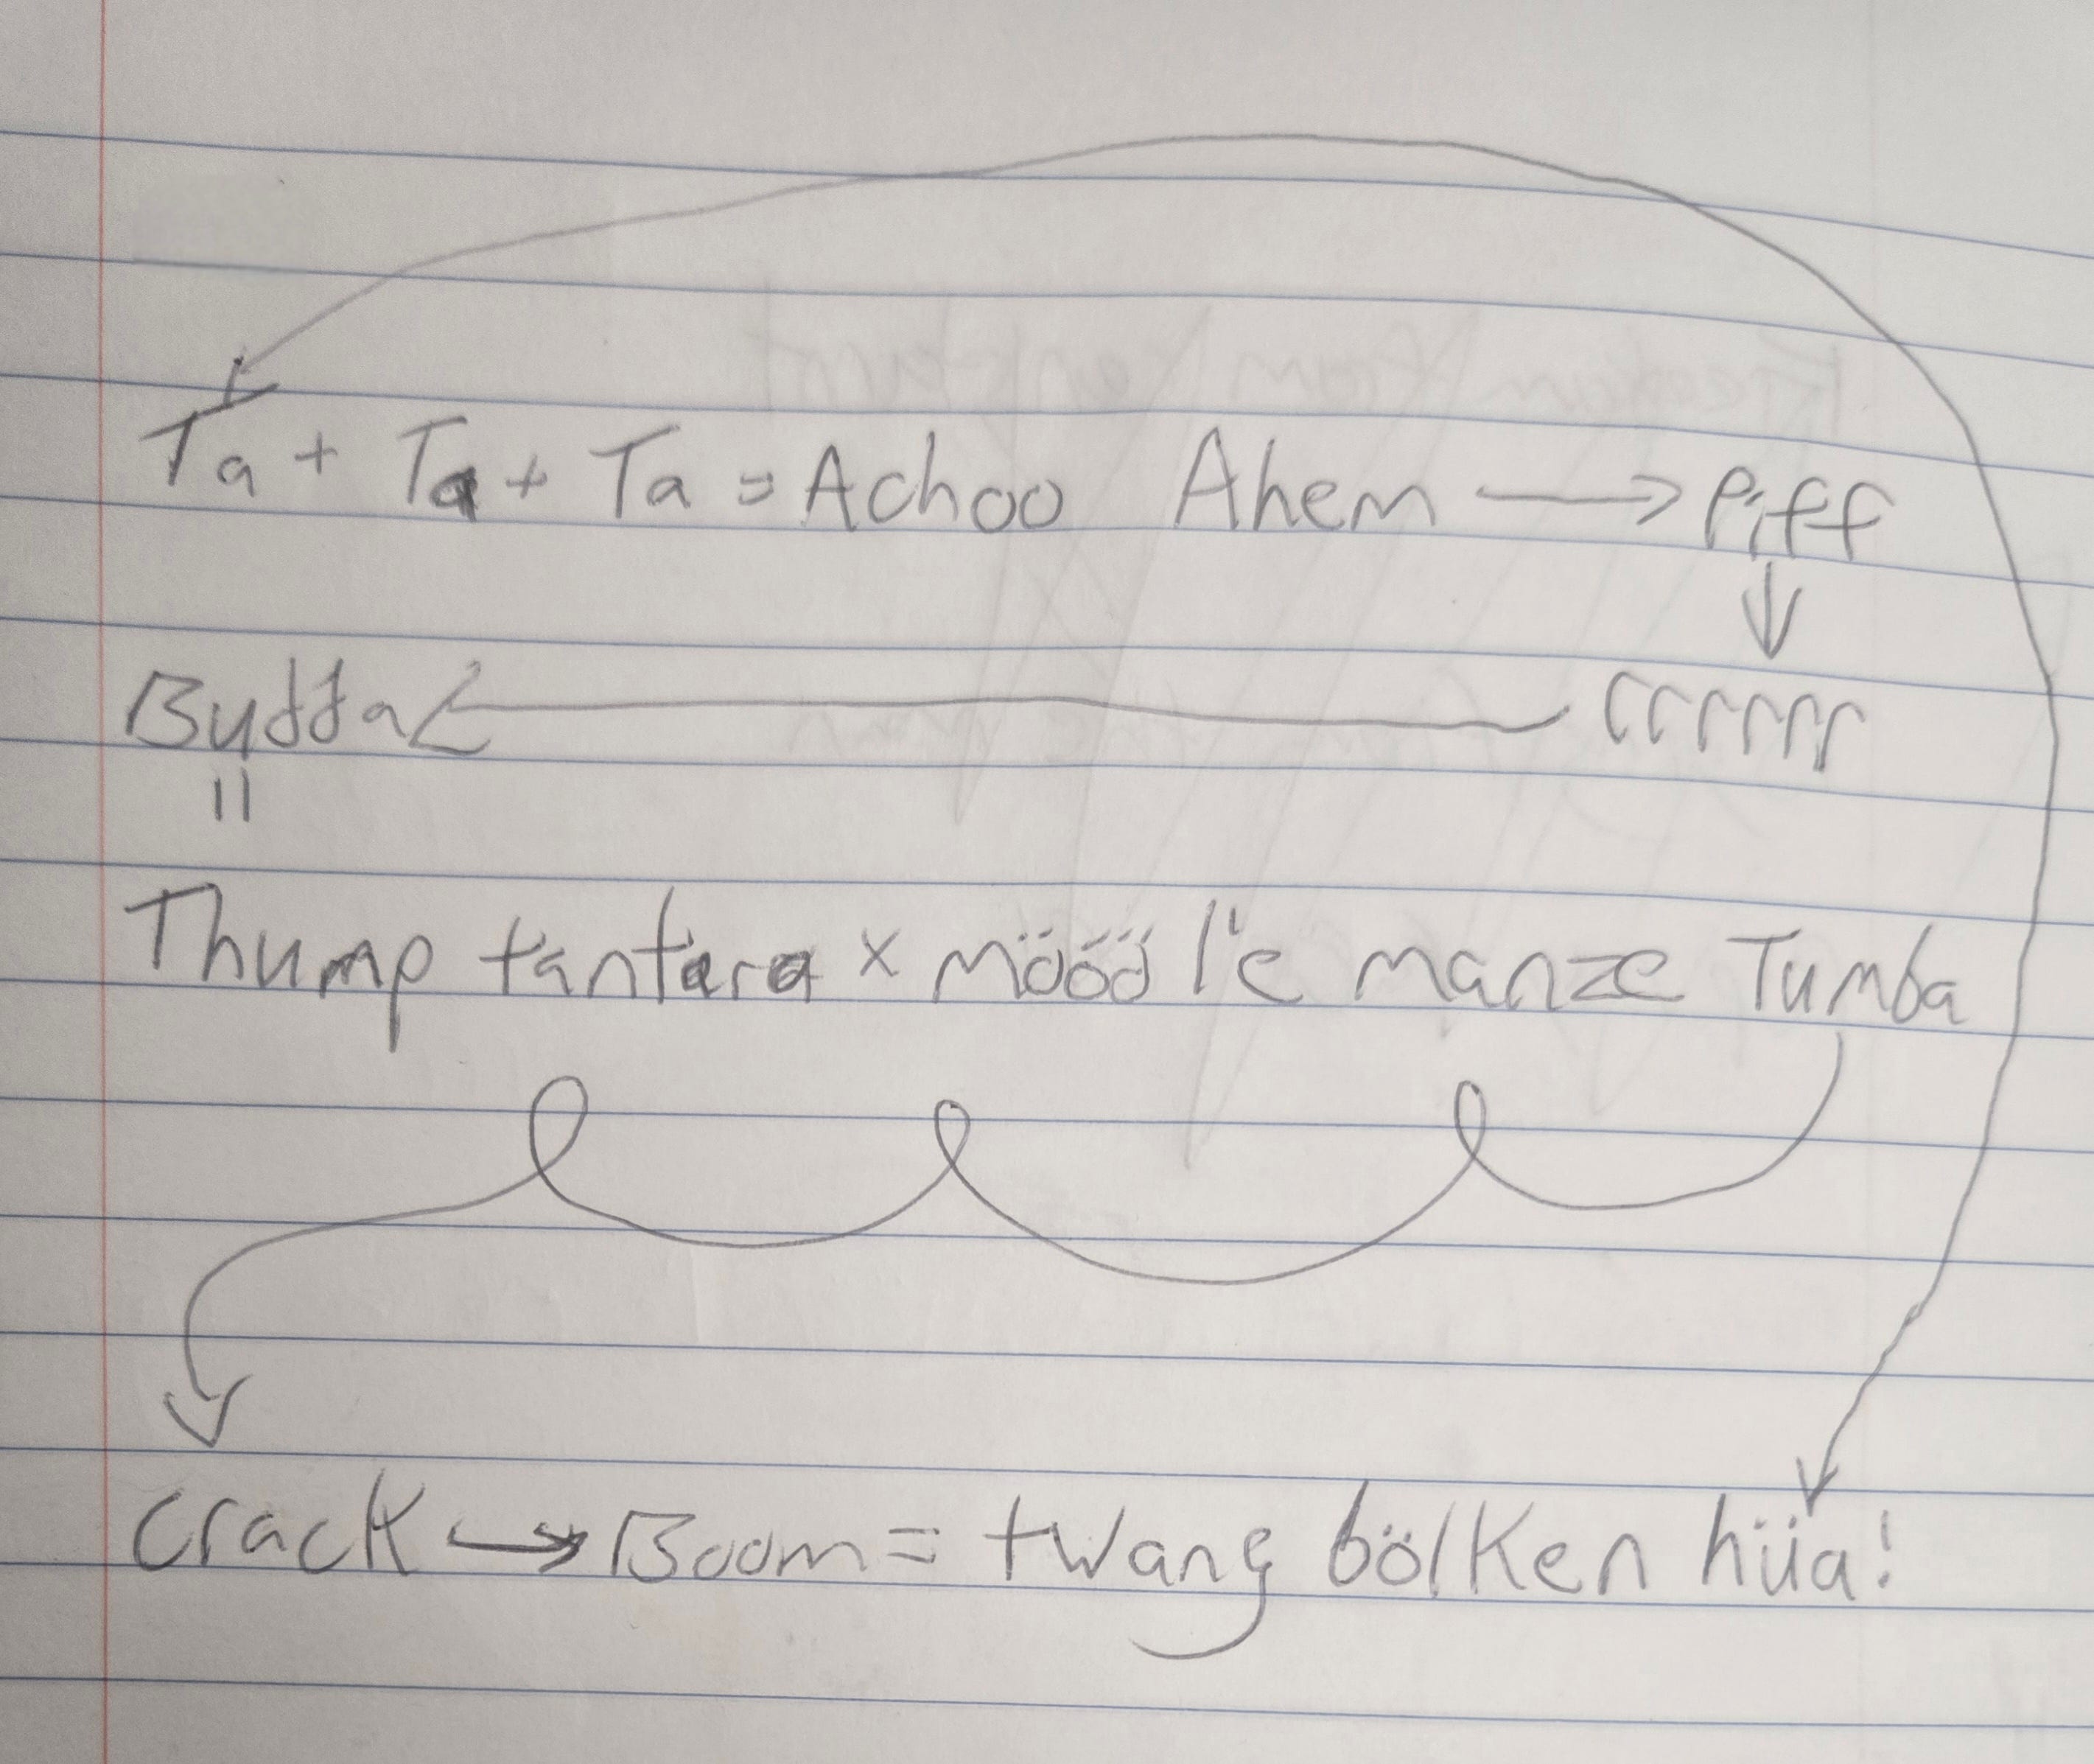 Ta + Ta + Ta = Achoo Ahem → Piff
↓
Buffa ← rrrrrr
||
Thump tantara x möööö l'e manze Tumba
Crack → Boom = twang bölken hüa!